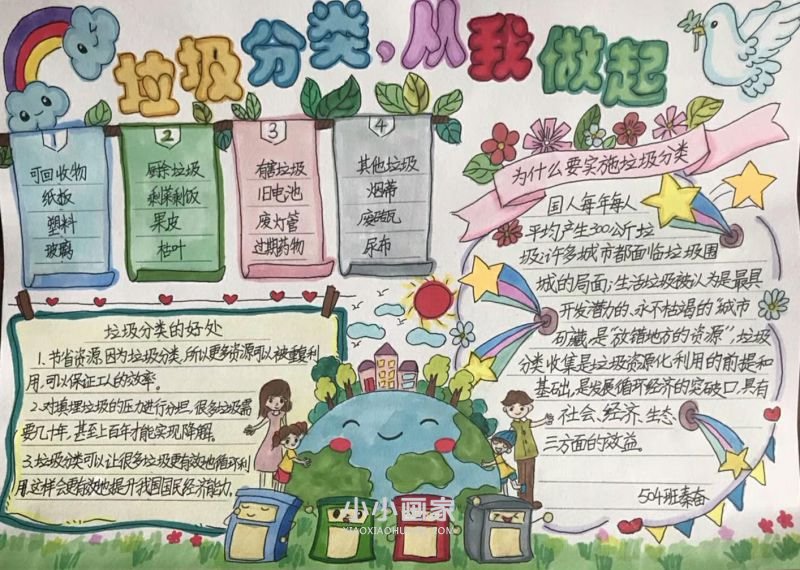 垃圾分类、从我做起
1
可回收物
纸板
塑料
玻璃
2
厨余垃圾
剩菜剩饭
果皮
枯叶
3
有害垃圾
旧电池
废灯管
过期药物
4
其他垃圾
烟蒂
废砖瓦
尿布
为什么要实施垃圾分类
国人每年每人
平均产生300公斤垃
圾;许多城市都面临垃圾围
城的局面;生活垃圾被认为是最具
开发潜力的、永不枯竭的“城市
矿藏,是“放错地方的资源”,垃圾
分类收集是垃圾资源化利用的前提和
基础,是发展循环经济的突破口,具有
社会、经济、生态
三方面的效益。
504班秦奋
垃圾分类的好处
1.节省资源,因为垃圾分类,所以更多资源可以被重复利
用,可以保证工人的效率。
2.对填埋垃圾的压力进行分担,很多垃圾需
要几十年,甚至上百年才能实现降解。
3.垃圾分类可以让很多垃圾更有效地循环利
用,这样会更有效地提升我国国民经济能力。
小小画家
XIAOXIAOHUAJIA.COM